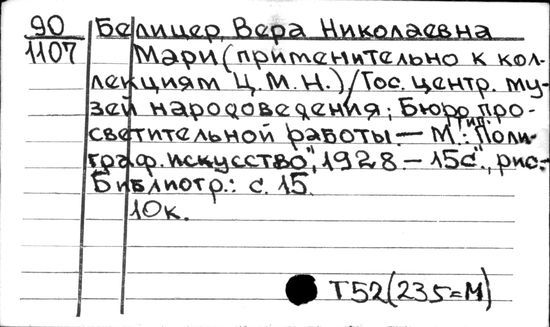 90 Белицер, Вера Николаевна
1107 Мари (применительно к кол-
лекциям Ц.М.Н.) / Гос. центр. му-
зей народоведения; Бюро про-
светительной работы. — М.: Тип. "Поли-
граф. искусство", 1928 — 15с., рис.-
Библиогр.: с. 15.
10к.
Т52(235=М)